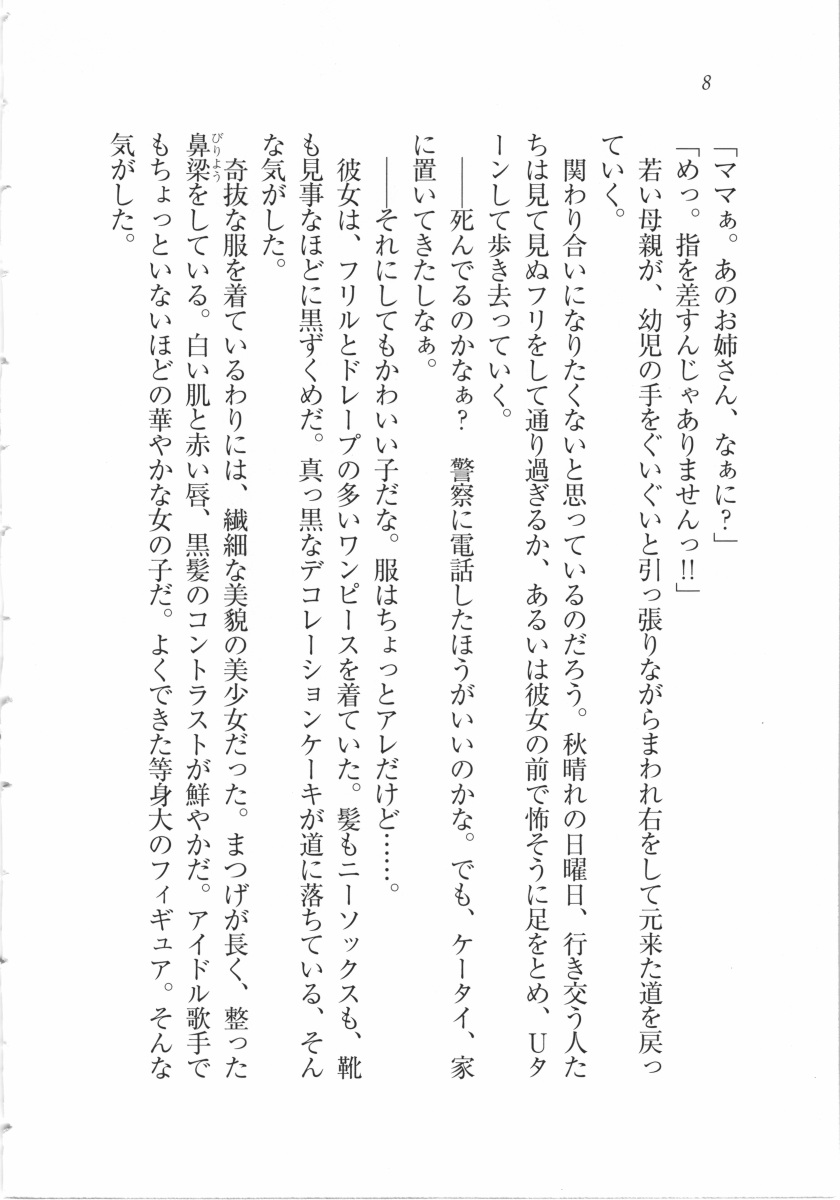 8
「ママぁ。あのお姉さん、なぁに?」
「めっ。指を差すんじゃありませんっ!!」
若い母親が、幼児の手をぐいぐいと引っ張りながらまわれ右をして元来た道を戻っ
ていく。
関わり合いになりたくないと思っているのだろう。秋晴れの日曜日、行き交う人た
ちは見て見ぬフリをして通り過ぎるか、あるいは彼女の前で怖そうに足をとめ、Uタ
ーンして歩き去っていく。
――死んでるのかなぁ? 警察に電話したほうがいいのかな。でも、ケータイ、家
に置いてきたしなぁ。
――それにしてもかわいい子だな。服はちょっとアレだけど……。
彼女は、フリルとドレープの多いワンピースを着ていた。髪もニーソックスも、靴
も見事なほどに黒ずくめだ。真っ黒なデコレーションケーキが道に落ちている、そん
な気がした。
奇抜な服を着ているわりには、繊細な美貌の美少女だった。まつげが長く、整った
鼻梁をしている。白い肌と赤い唇、黒髪のコントラストが鮮やかだ。アイドル歌手で
びりよう
もちょっといないほどの華やかな女の子だ。よくできた等身大のフィギュア。そんな
気がした。